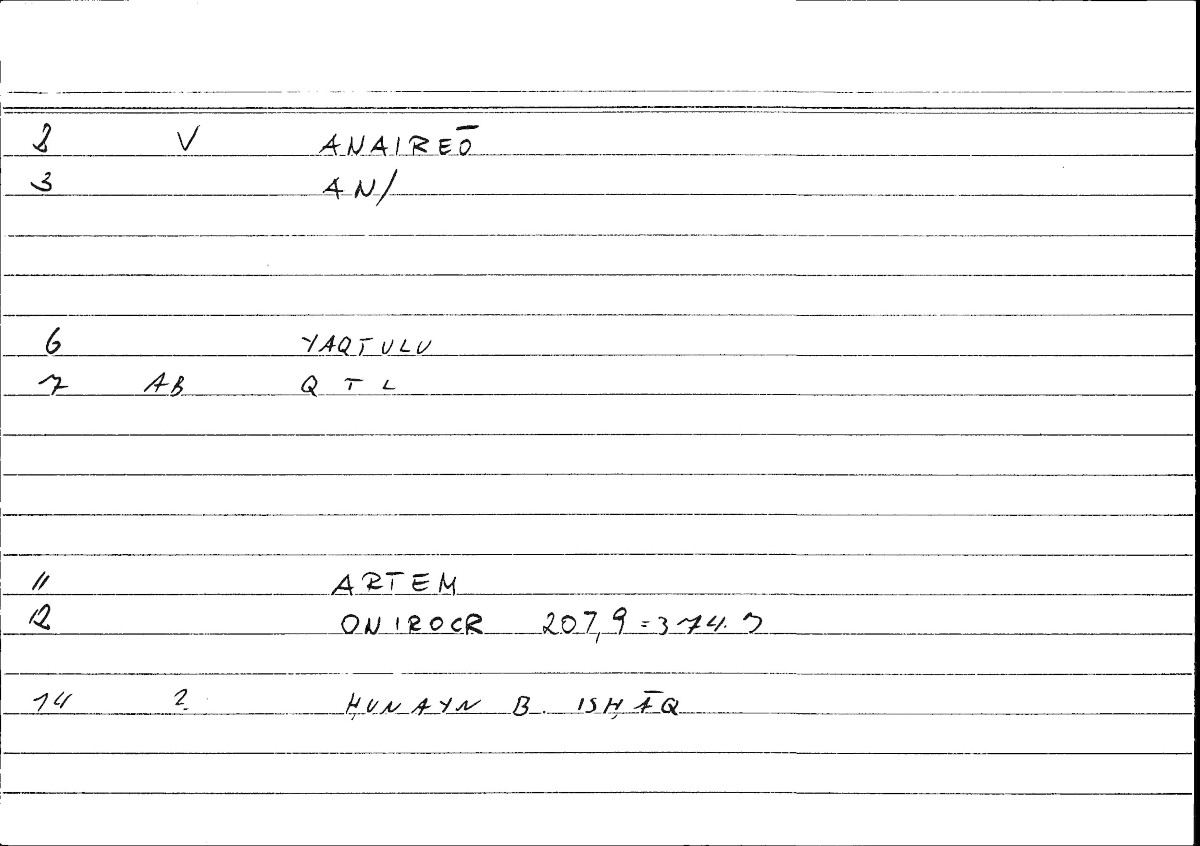 2 V ANAIREŌ
3 AN/
6 YAQTULU
7 AB Q T L
11 ARTEM
12 ONIROCR 207,9 = 374.9
14 2. ḤUNAYN B. ISḤĀQ